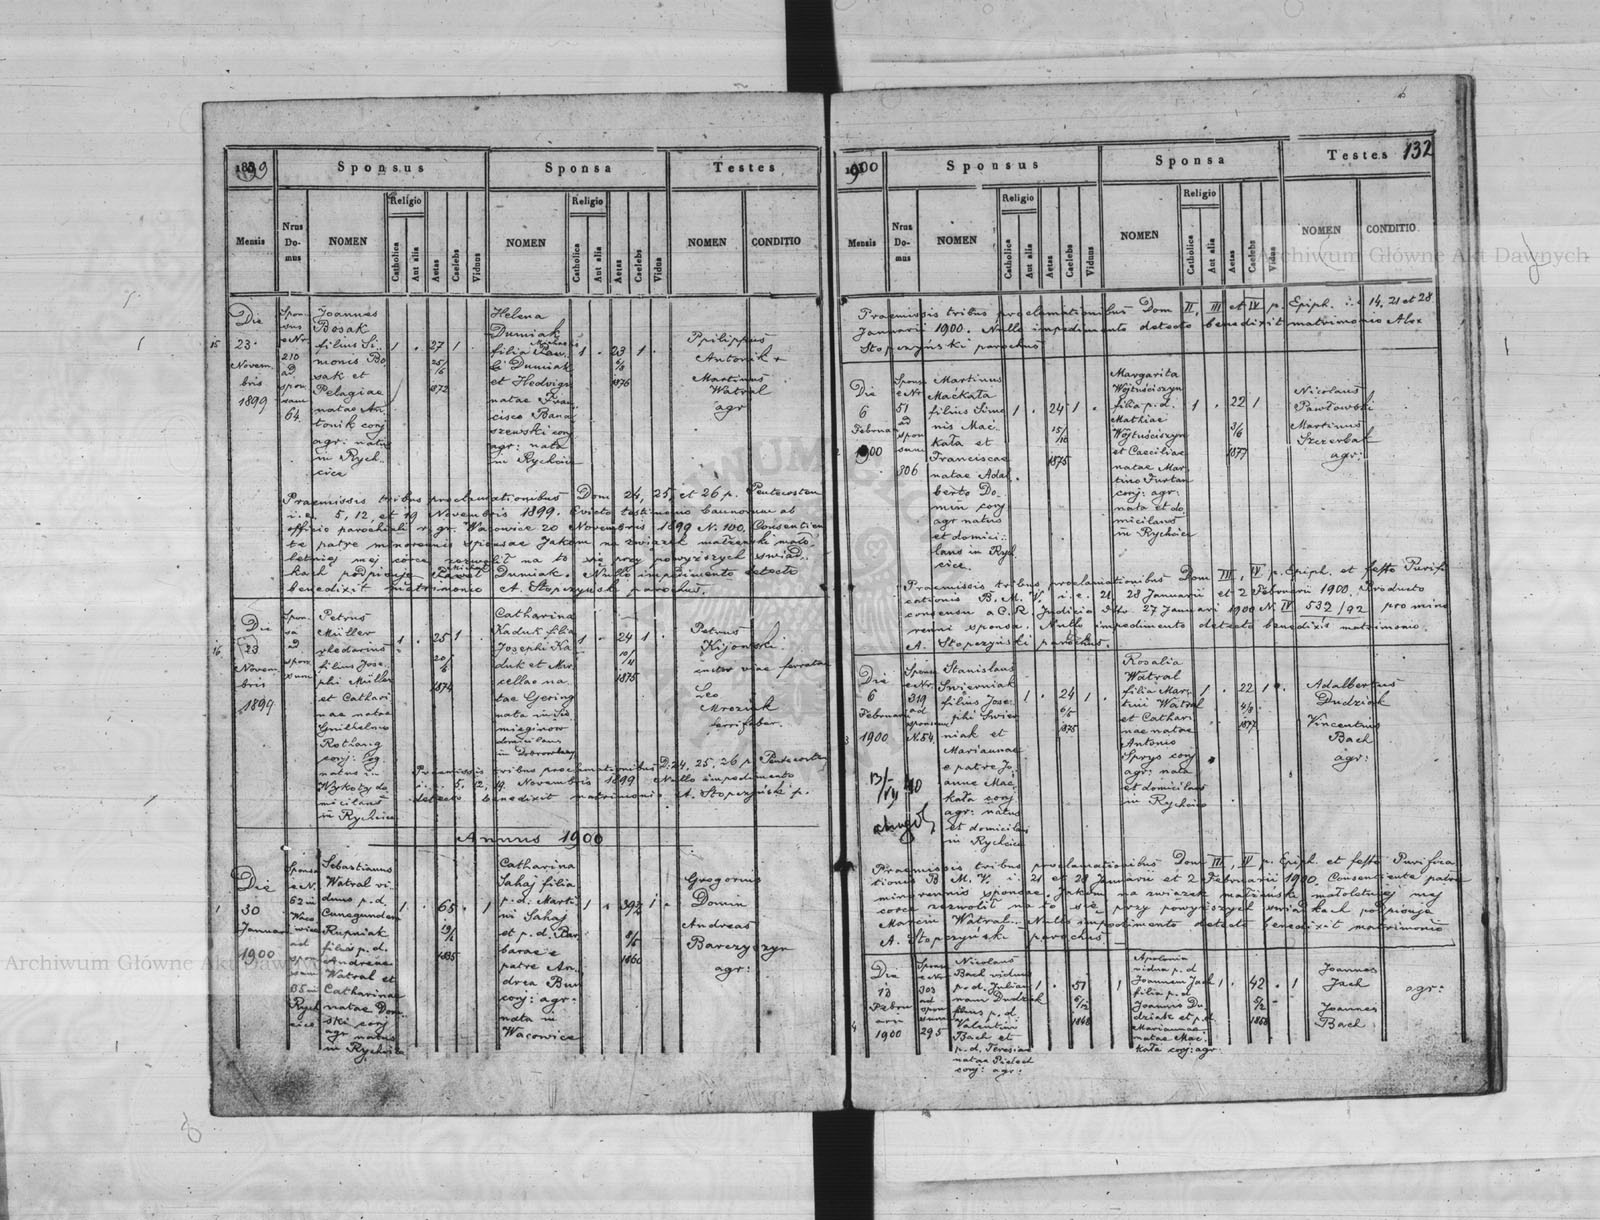 1899
Sponsus
Sponsa
Testes
Mensis
Nrus
Do-
mus
NOMEN
Religio
Catholica
Aut alia
Aetas
Caelebs
Viduus
NOMEN
Religio
Catholica
Aut alia
Aetas
Caelebs
Vidua
NOMEN
CONDITIO
15
Die
23.
Novem.
bris
1899
Spon-
sus
e Nr
210
ad
spon.
sam
64.
Joannes
Bosak
filius Si-
monis Bo
sak et
Pelagiae
natae An-
tonik conj
agr: natus
in Rych-
cice
1 . 27 1 .
25/6
1872
Helena
Dumiak
filia Paw-
li Dumiak
et Hedvigis
natae Fran-
cisco Bana
szewski conj
agr: nata
in Rychcice
1 . 23 1 .
1876
Philippus
Antonik +
Martinus
Watral
agr
Praemissis tribus proclamationibus Dom. 24, 25, et 26 p. Pentecosten
i. e. 5, 12, et 19 Novembris 1899. Evicto testimonio bannorum ab
officio parochiali r. gr. Wacowice 20 Novembris 1899 N. 100. Consentien
te patre minorennis sponsae Jakom na związek małżeński mało
letniej mej córce zezwolił na to się przy powyższych świad
kach podpisuję Paweł Dumiak. Nullo impedimento detecto
benedixit matrimonio A. Stopczyński parochus.
16
Die
23
Novem-
bris
1899
Spon-
sa
ad
spon
sum
Petrus
Müller
rhedarius
filius Jose-
phi Müller
et Cathari
nae natae
Guilhelmo
Rothang
conj: log
natus in
Wykoty do
micilans
in Rychcice
1 . 25 1
20/6
1874
Catharina
Kaduk filia
Josephi Ka
duk et Mar
cellae na
tae Gering
nata in Sie
mieginow
domicilans
in Dobrowlany
1 . 24 1 .
10/11
1875
Petrus
Kijowski
custor viae ferratae
Leo
Mroziuk
ferrifaber.
Praemissis tribus proclamationibus D. 24, 25, 26 p. Pentecosten
i. e. 5, 12, 19 Novembris 1899 Nullo impedimento
detecto benedixit matrimonio A. Stopczyński p.
Annus 1900
1
Die
30
Januarii
1900
Sponsa
e N.
62 in
Waco
wice
ad
spon
sum
35 in
Rych
cice
Sebastianus
Watral vi-
duus p. d.
Cunegundem
Rupniak
filius p. d.
Andreae
Watral et
Catharinae
natae Dom-
ski conj
agr natus
in Rychcice
1 . 65 . 1
19/1
1835
Catharina
Sahaj filia
p. d. Marti-
ni Sahaj
et p. d. Bar
barae e
patre An-
drea Bun
conj: agr:
nata in
Wacowice
1 . 39½ 1 .
8/5
1860
Gregorius
Domin
Andreas
Barczyczyn
agr:
1900
132
Sponsus
Sponsa
Testes
Mensis
Nrus
Do-
mus
NOMEN
Religio
Catholica
Aut alia
Aetas
Caelebs
Viduus
NOMEN
Religio
Catholica
Aut alia
Aetas
Caelebs
Vidua
NOMEN
CONDITIO
Praemissis tribus proclamationibus Dom II, III et IV p. Epiph. i. e 14, 21 et 28
Januarii 1900. Nullo impedimento detecto benedixit matrimonio Alex
Stopczyński parochus
2
Die
6
Februar
1900
Sponsus
e Nr
51
ad
spon
sam
306
Martinus
Maćkała
filius Simo
nis Mać-
kała et
Franciscae
natae Adal
berto Do-
min conj
agr natus
et domici-
lans in Rych
cice.
1 . 24 1 .
15/10
1875
Margarita
Wójtuściszyn
filia p. d.
Mathiae
Wójtuściszyn
et Caeciliae
natae Mar-
tino Furtan
conj: agr:
nata et do
micilans
in Rychcice
1 . 22 1
3/6
1877
Nicolaus
Pawłowski
Martinus
Szczerbak
agr:
Praemissis tribus proclamationibus Dom III, IV p. Epiph. et festo Purifi
cationis B. M. V. i. e. 21, 28 Januarii et 2 Februarii 1900. Producto
consensu a C. R. Judicio dto 27 Januari 1900 N. IV 532/92 pro mino
renni sponsa. Nullo impedimento detecto benedixit matrimonio.
A. Stopczyński parochus.
3
Die
6
Februarii
1900
Sponsus
e Nr.
319
ad
sponsam
N. 54.
Stanislaus
Swierniak
filius Jose-
phi Swier
niak et
Mariannae
e patre Jo
anne Mać-
kała conj
agr: natus
et domicilans
in Rychcice
1 . 24 1 .
6/5
1875
Rosalia
Watral
filia Mar-
tini Watral
et Cathari
nae natae
Antonio
Sprys conj
agr: nata
et domicilans
in Rychcice
1 . 22 1 .
4/9
1877
Adalbertus
Dudziak
Vincentius
Bach
agr:
Praemissis tribus proclamationibus Dom III, IV p. Epiph. et festo Purifica
tionis B M. V. i. 21 et 28 Januarii et 2 Februarii 1900. Consentiente patre
minorennis sponsae. Jakom na związek małżeński małoletniej mej
córce zezwolił na to się przy powyższych świadkach podpisuję
Marcin Watral. Nullo impedimento detecto benedixit matrimonio
A. Stopczyński parochus
4
Die
13
Febru
arii
1900
Sponsus
e Nr
303
ad
spon
sam
295
Nicolaus
Bach viduus
p. d. Julian
nam Dudziak
filius p. d.
Valentini
Bach et
p. d. Teresiae
natae Pietech
conj: agr:
1 . 51 . 1
6/12
1848
Apolonia
vidua p. d
Joannem Jach
filia p. d.
Joannis Du
dziak et p. d.
Mariannae
natae Mać
kała conj: agr
1 . 42 . 1
5/2
1858
Joannes
Jach
Joannes
Bach
agr:
Archiwum Główne Akt Dawnych
Archiwum Główne Akt Dawnych